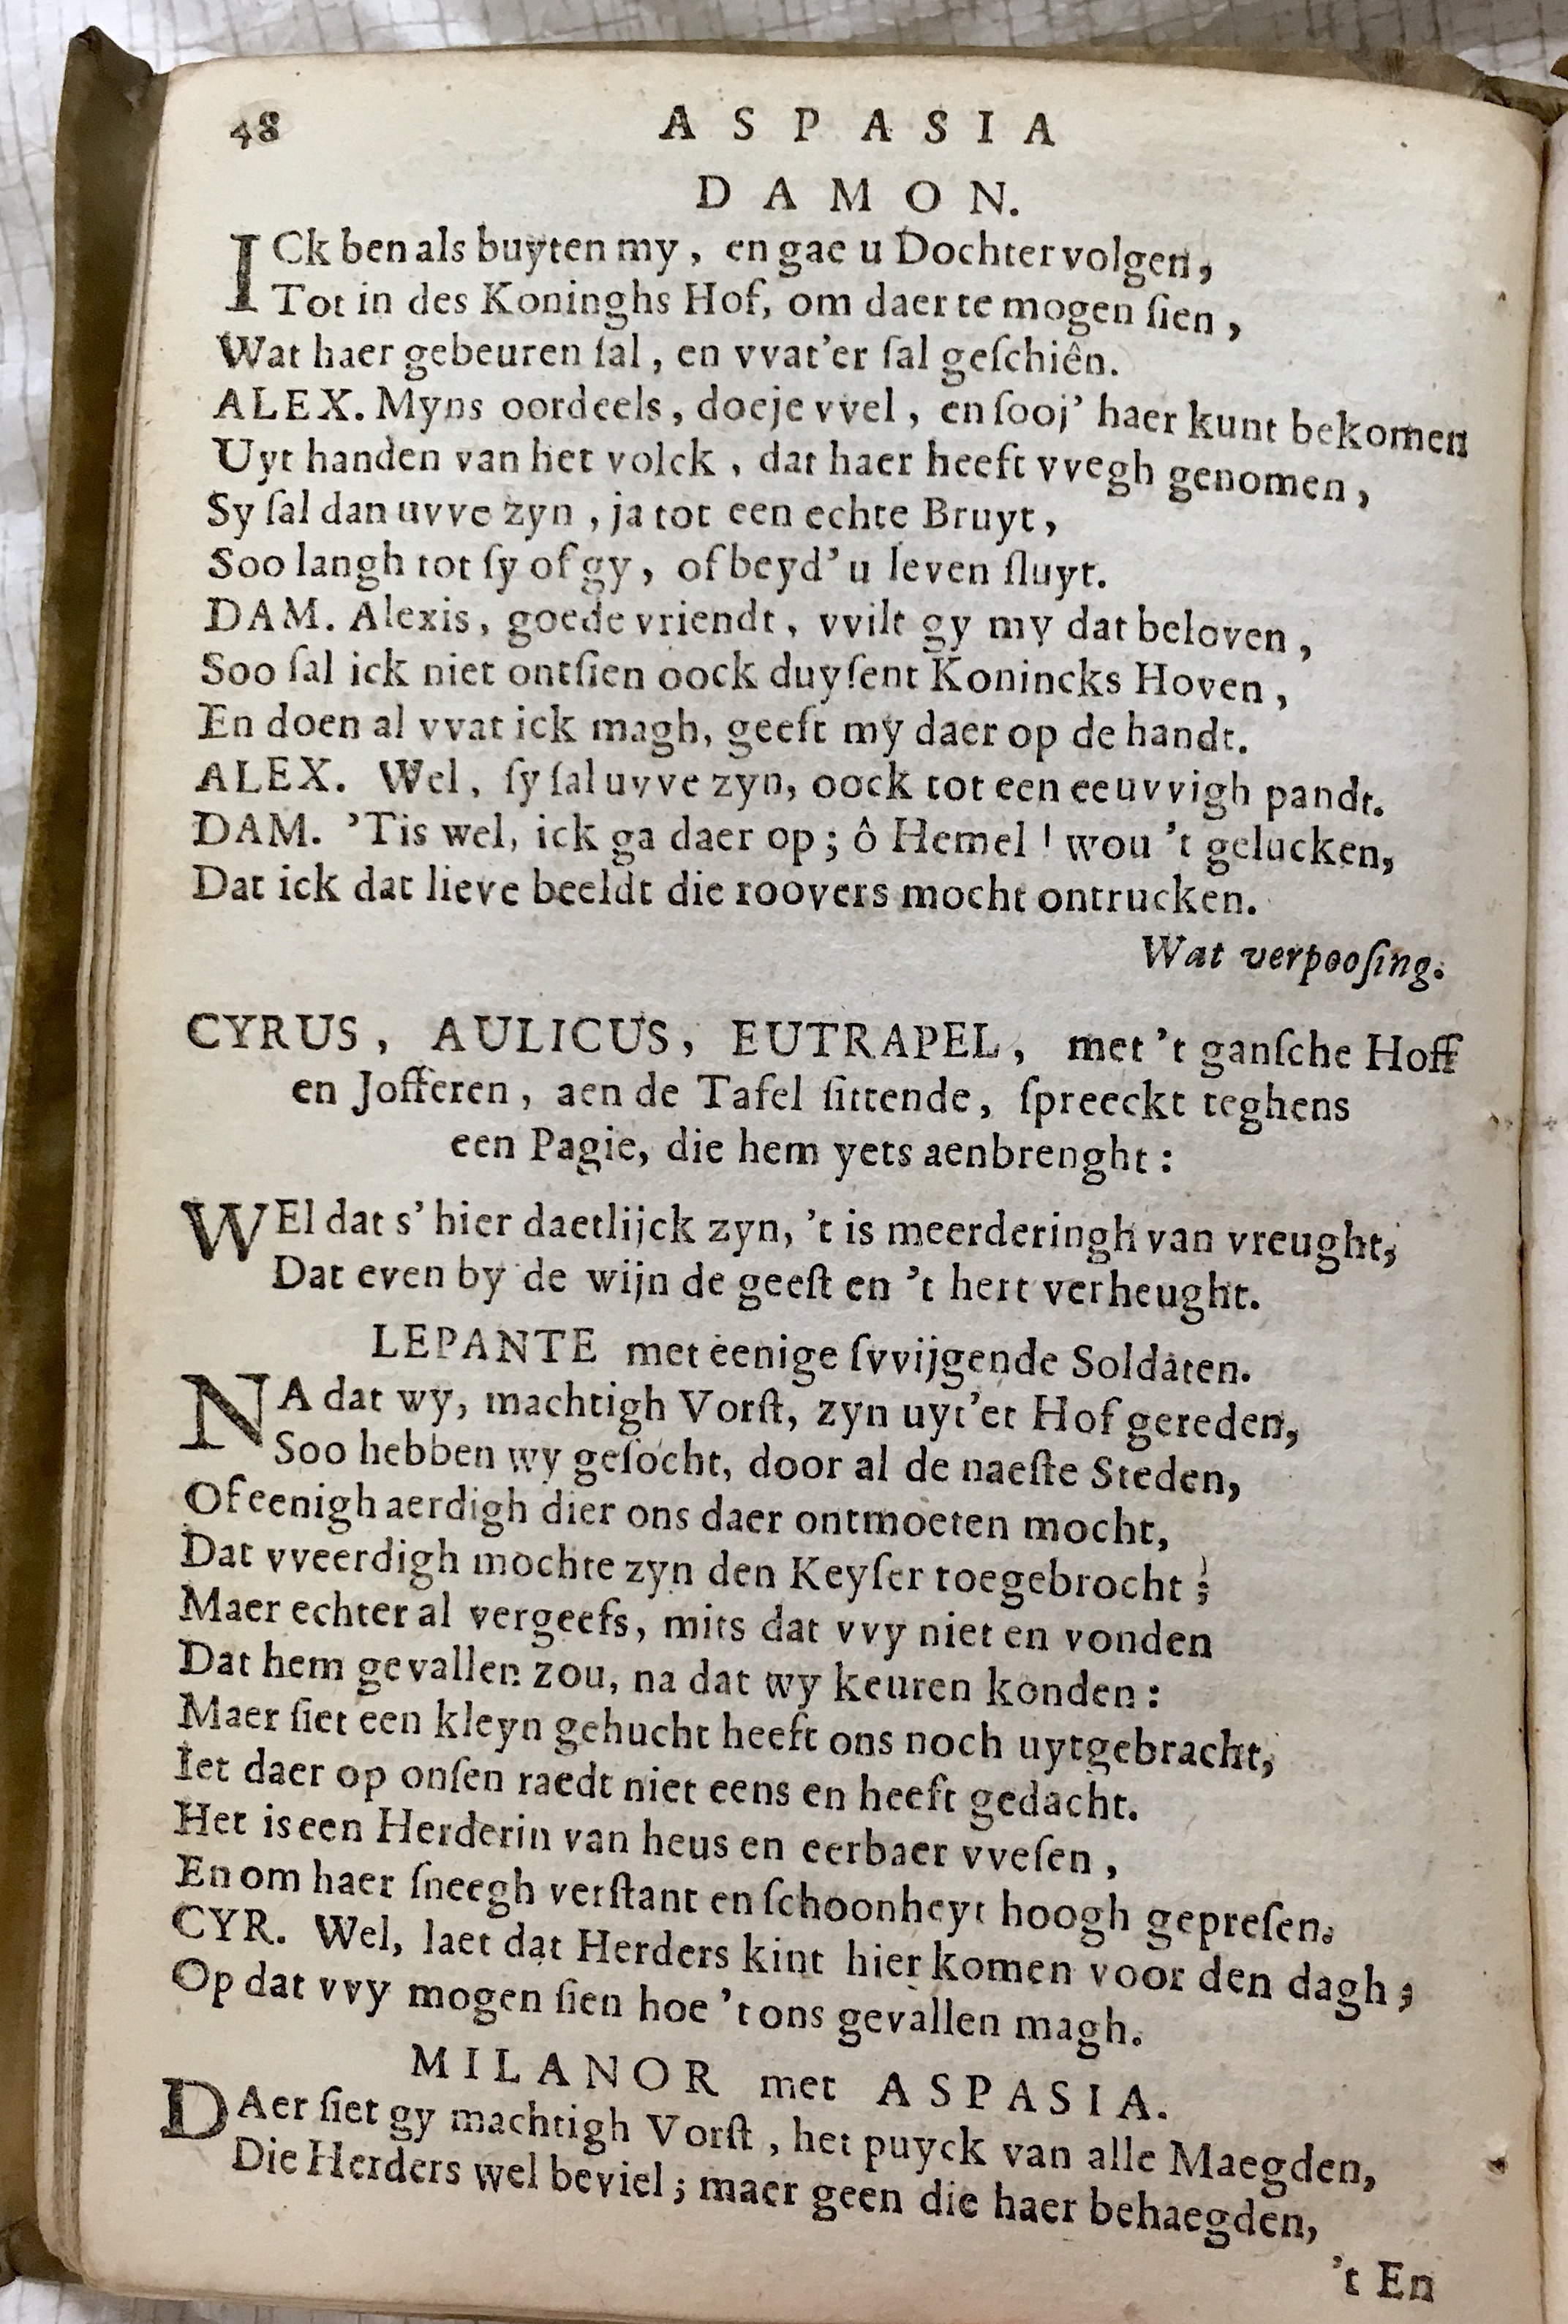 48 ASPASIA
DAMON.
ICk ben als buyten my, en gae u Dochter volgen,
Tot in des Koninghs Hof, om daer te mogen ſien,
Wat haer gebeuren ſal, en vvat'er ſal geſchiên.
ALEX. Myns oordeels, doeje vvel, en ſooj' haer kunt bekomen
Uyt handen van het volck, dat haer heeft vvegh genomen,
Sy ſal dan uvve zyn, ja tot een echte Bruyt,
Soo langh tot ſy of gy, of beyd' u leven ſluyt.
DAM. Alexis, goede vriendt, vvilt gy my dat beloven,
Soo ſal ick niet ontſien oock duyſent Konincks Hoven,
En doen al vvat ick magh, geeft my daer op de handt.
ALEX. Wel, ſy ſal uvve zyn, oock tot een eeuvvigh pandt.
DAM. 'Tis wel, ick ga daer op; ô Hemel! wou 't gelucken,
Dat ick dat lieve beeldt die roovers mocht ontrucken.
Wat verpooſing.
CYRUS, AULICUS, EUTRAPEL, met 't ganſche Hoff
en Jofferen, aen de Tafel ſittende, ſpreeckt teghens
een Pagie, die hem yets aenbrenght:
WEl dat s' hier daetlijck zyn, 't is meerderingh van vreught,
Dat even by de wijn de geeſt en 't hert verheught.
LEPANTE met eenige ſvvijgende Soldaten.
NA dat wy, machtigh Vorſt, zyn uyt'et Hof gereden,
Soo hebben wy geſocht, door al de naeſte Steden,
Of eenigh aerdigh dier ons daer ontmoeten mocht,
Dat vveerdigh mochte zyn den Keyſer toegebrocht;
Maer echter al vergeefs, mits dat vvy niet en vonden
Dat hem gevallen zou, na dat wy keuren konden:
Maer ſiet een kleyn gehucht heeft ons noch uytgebracht,
Iet daer op onſen raedt niet eens en heeft gedacht.
Het is een Herderin van heus en eerbaer vveſen,
En om haer ſneegh verſtant en ſchoonheyt hoogh gepreſen.
CYR. Wel, laet dat Herders kint hier komen voor den dagh;
Op dat vvy mogen ſien hoe 't ons gevallen magh.
MILANOR met ASPASIA.
DAer ſiet gy machtigh Vorſt, het puyck van alle Maegden,
Die Herders wel beviel; maer geen die haer behaegden,
't En